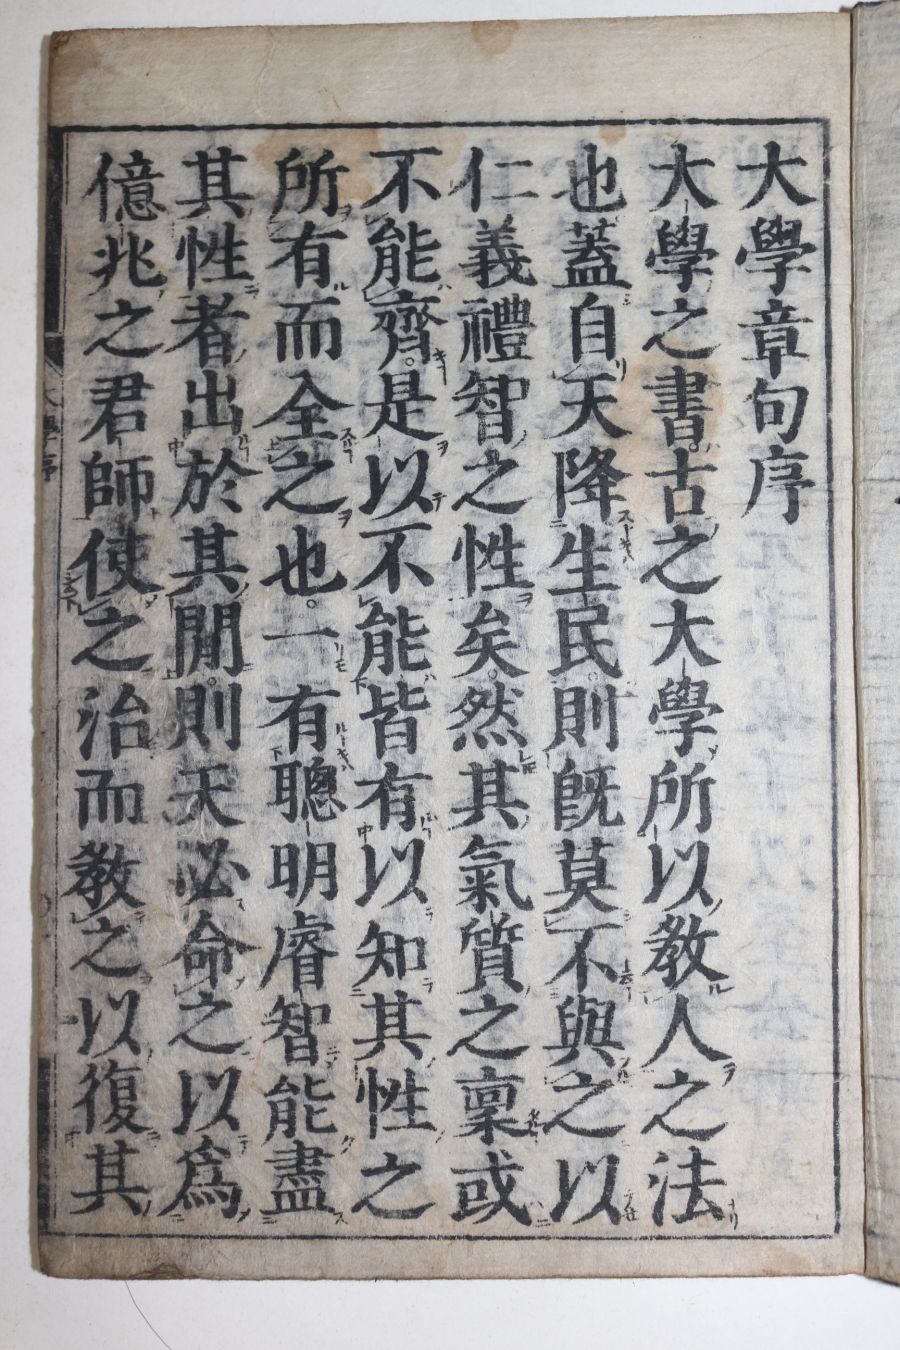 大學章句序
大學之書古之大學所以教人之法
也蓋自天降生民則既莫不與之以
仁義禮智之性矣然其氣質之稟或
不能齊是以不能皆有以知其性之
所有而全之也一有聰明睿智能盡
其性者出於其閒則天必命之以爲
億兆之君師使之治而教之以復其
大學序